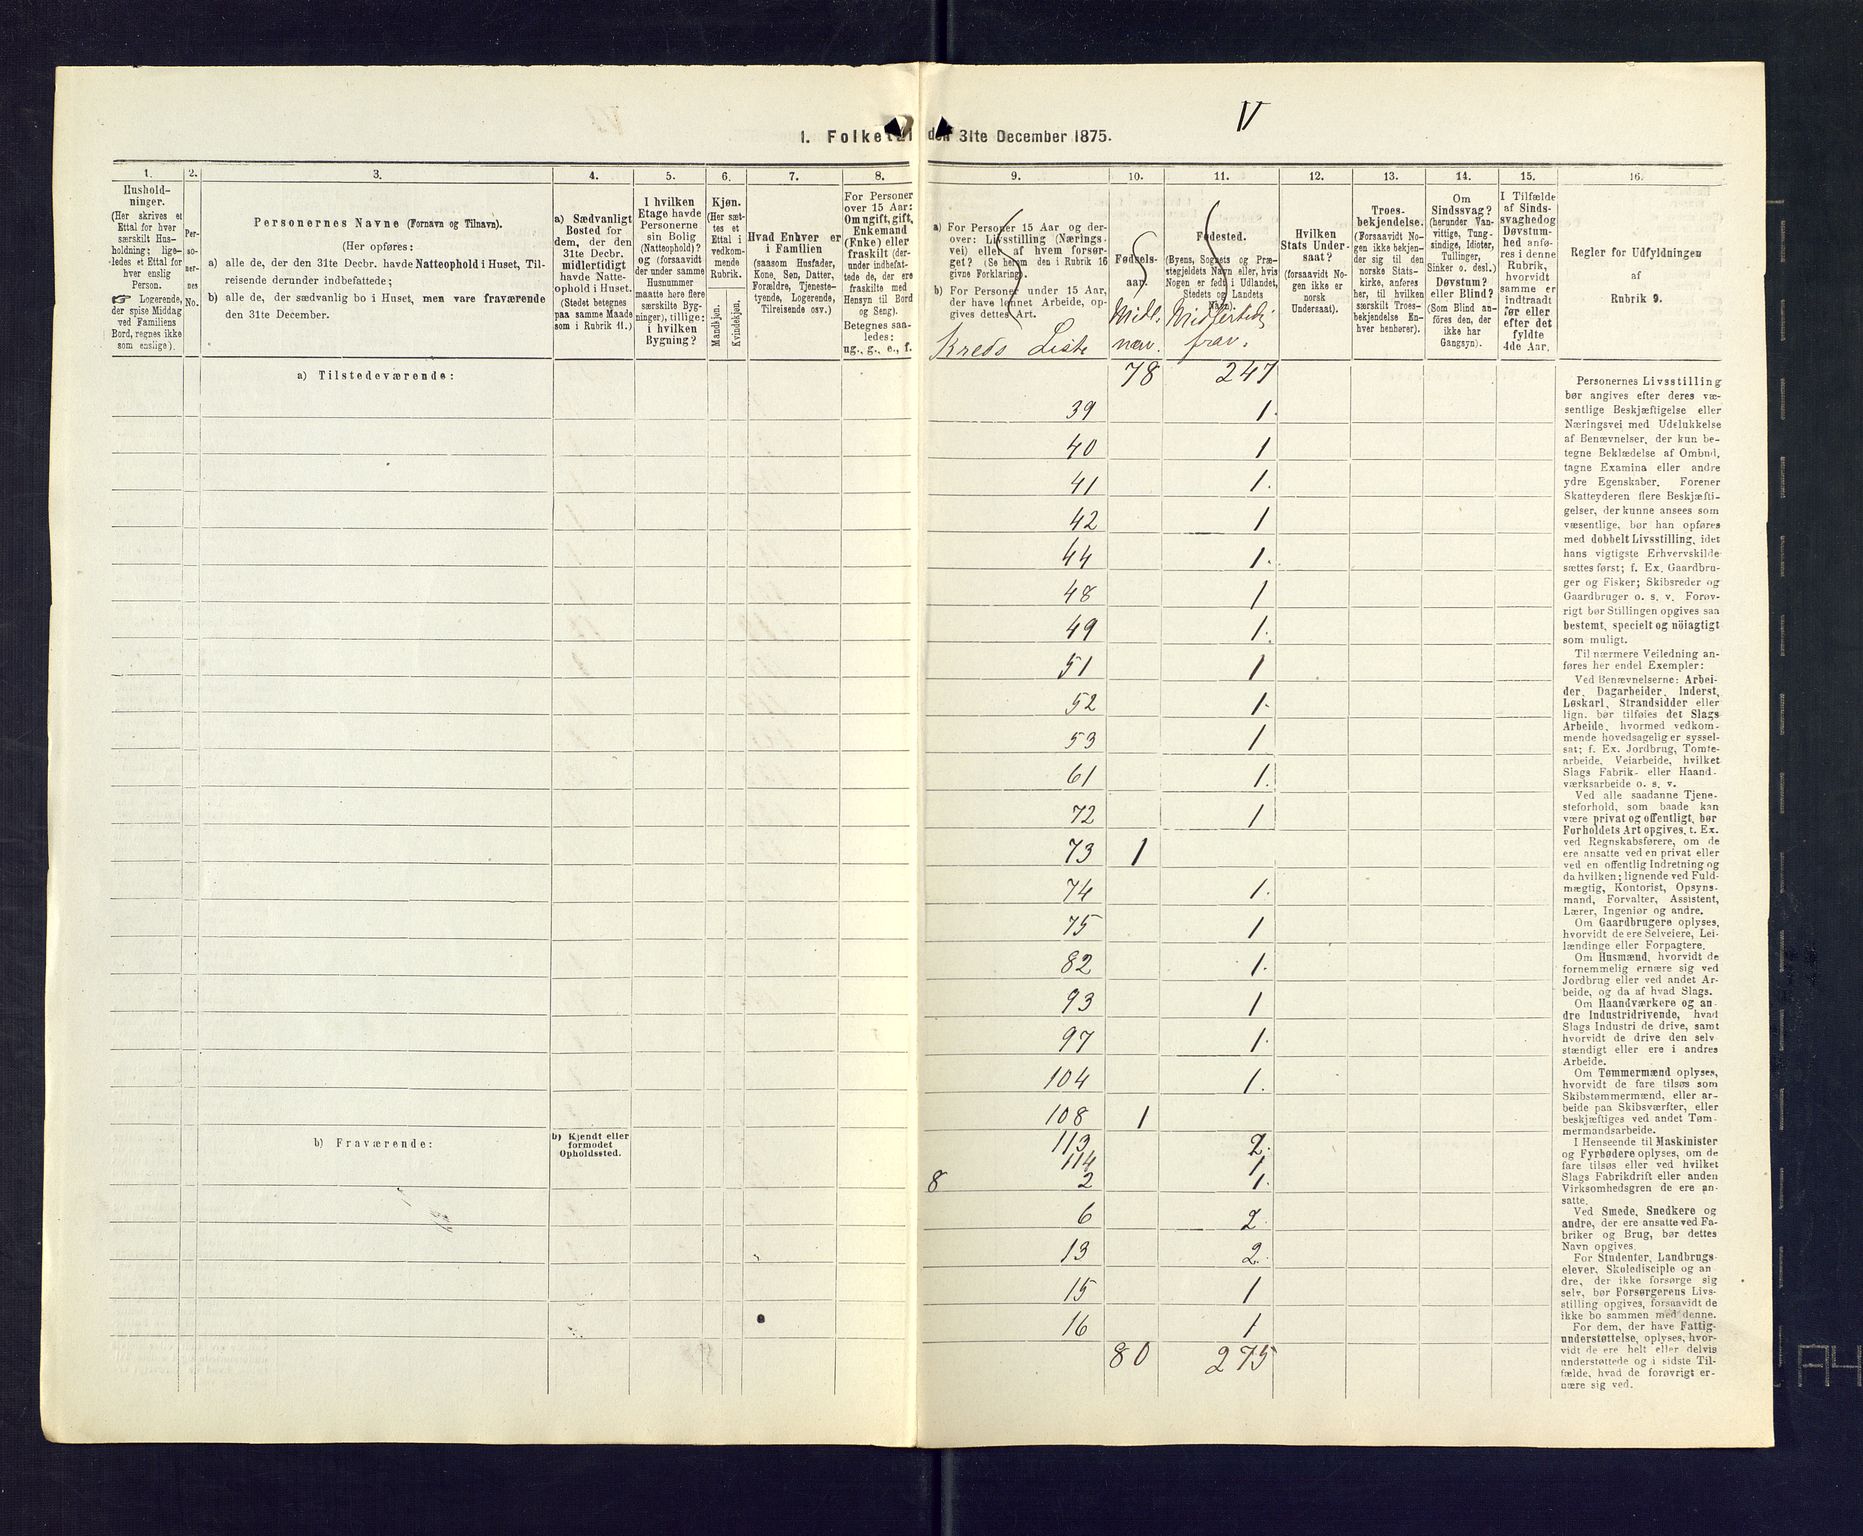 V
1. Folketal den 31te December 1875.
1. 2. 3. 4. 5. 6. 7. 8. 9. 10. 11. 12. 13. 14. 15. 16.
Hushold-
ninger.
(Her skrives et
Ettal for hver
særskilt Hus-
holdning; lige-
ledes et Ettal for
hver enslig
Person.
☞ Logerende,
der spise Middag
ved Familiens
Bord, regnes ikke
som enslige).
Per-
so-
ner-
nes
No.
Personernes Navne (Fornavn og Tilnavn).
(Her opføres:
a) alle de, der den 31te Decbr. havde Natteophold i Huset, Til-
reisende derunder indbefattede;
b) alle de, der sædvanlig bo i Huset, men vare fraværende
den 31te December.
a) Sædvanligt
Bosted for
dem, der den
31te Decbr.
midlertidigt
havde Natte-
ophold i Huset.
(Stedet betegnes
paa samme Maade
som i Rubrik 11.)
I hvilken
Etage havde
Personerne
sin Bolig
(Natteophold)?
og (forsaavidt
der under samme
Husnummer
maatte høre flere
særskilte Byg-
ninger), tillige:
i hvilken
Bygning?
Kjøn.
(Her sæt-
tes et
Ettal i
vedkom-
mende
Rubrik.
Mandkjøn.
Kvindekjøn.
Hvad Enhver er
i Familien
(saasom Husfader,
Kone, Søn, Datter,
Forældre, Tjeneste-
tyende, Logerende,
Tilreisende osv.)
For Personer
over 15 Aar:
Om ugift, gift,
Enkemand
(Enke) eller
fraskilt (der-
under indbefat-
tede de, der ere
fraskilte med
Hensyn til Bord
og Seng).
Betegnes saa-
ledes:
ug., g., e., f.
a) For Personer 15 Aar og der-
over: Livsstilling (Nærings-
vei) eller af hvem forsør-
get? (Se herom den i Rubrik 16
givne Forklaring).
b) For Personer under 15 Aar,
der have lønnet Arbeide, op-
gives dettes Art.
Kreds Liste
Fødsels-
aar.
Midl.
nærv.
Fødested.
(Byens, Sognets og Præ-
stegjeldets Navn eller, hvis
Nogen er født i Udlandet,
Stedets og Landets
Navn).
Midlertidig
frav.
Hvilken
Stats Under-
saat?
(forsaavidt No-
gen ikke er
norsk
Undersaat).
Troes-
bekjendelse.
(Forsaavidt No-
gen ikke bekjen-
der sig til den
norske Stats-
kirke, anføres
her, til hvilken
særskilt Troes-
bekjendelse En-
hver henhører).
Om
Sindssvag?
(herunder Van-
vittige, Tung-
sindige, Idioter,
Tullinger,
Sinker o. desl.)
Døvstum?
eller Blind?
(Som Blind an-
føres den, der
ikke har
Gangsyn).
I Tilfælde
af Sinds-
svaghedog
Døvstum-
hed anfø-
res i denne
Rubrik,
hvorvidt
samme er
indtraadt
før eller
efter det
fyldte
4de Aar.
Regler for Udfyldningen
af
Rubrik 9.
a) Tilstedeværende:
78 247
39 1.
40 1
41 1.
42 1
44 1.
48 1
49 1.
51 1
52 1.
53 1
61 1.
72 1
73 1
74 1.
75 1
82 1.
93 1
97 1.
104 1.
108 1
b) Fraværende:
b) Kjendt eller
formodet
Opholdssted.
113 2.
114 1
8 2 1.
6 2
13 2.
15 1
16 1
80 275
Personernes Livsstilling
bør angives efter deres væ-
sentlige Beskjæftigelse eller
Næringsvei med Udelukkelse
af Benævnelser, der kun be-
tegne Beklædelse af Ombud,
tagne Examina eller andre
ydre Egenskaber. Forener
Skatteyderen flere Beskjæfti-
gelser, der kunne ansees som
væsentlige, bør han opføres
med dobbelt Livsstilling, idet
hans vigtigste Erhvervskilde
sættes først; f. Ex. Gaardbru-
ger og Fisker; Skibsreder og
Gaardbruger o. s. v. Forøv-
rigt bør Stillingen opgives saa
bestemt, specielt og nöiagtigt
som muligt.
Til nærmere Veiledning an-
føres her endel Exempler:
Ved Benævnelserne: Arbei-
der, Dagarbeider, Inderst,
Løskarl, Strandsidder eller
lign. bør tilføies det Slags
Arbeide, hvormed vedkom-
mende hovedsagelig er syssel-
sat; f. Ex. Jordbrug, Tomte-
arbeide, Veiarbeide, hvilket
Slags Fabrik- eller Haand-
værksarbeide o. s. v.
Ved alle saadanne Tjene-
steforhold, som baade kan
være privat og offentligt, bør
Forholdets Art opgives, t. Ex.
ved Regnskabsførere, om de
ere ansatte ved en privat eller
ved en offentlig Indretning og
da hvilken; lignende ved Fuld-
mægtig, Kontorist, Opsyns-
mand, Forvalter, Assistent,
Lærer, Ingeniør og andre.
Om Gaardbrugere oplyses,
hvorvidt de ere Selveiere, Lei-
lændinge eller Forpagtere.
Om Husmænd, hvorvidt de
fornemmelig ernære sig ved
Jordbrug eller ved andet Ar-
beide, og da af hvad Slags.
Om Haandværkere og an-
dre Industridrivende, hvad
Slags Industri de drive, samt
hvorvidt de drive den selv-
stændigt eller ere i andres
Arbeide.
Om Tømmermænd oplyses,
hvorvidt de fare tilsøs som
Skibstømmermænd, eller ar-
beide paa Skibsværfter, eller
beskjæftiges ved andet Tøm-
mermandsarbeide.
I Henseende til Maskinister
og Fyrbødere oplyses, om de
fare tilsøs eller ved hvilket
Slags Fabrikdrift eller anden
Virksomhedsgren de ere an-
satte.
Ved Smede, Snedkere og
andre, der ere ansatte ved Fa-
briker og Brug, bør dettes
Navn opgives.
For Studenter, Landbrugs-
elever, Skoledisciple og an-
dre, der ikke forsørge sig
selv, bør Forsørgerens Livs-
stilling opgives, forsaavidt de
ikke bo sammen med denne.
For dem, der have Fattig-
understøttelse, oplyses, hvor-
vidt de ere helt eller delvis
understøttede og i sidste Til-
fælde, hvad de forøvrigt er-
nære sig ved.